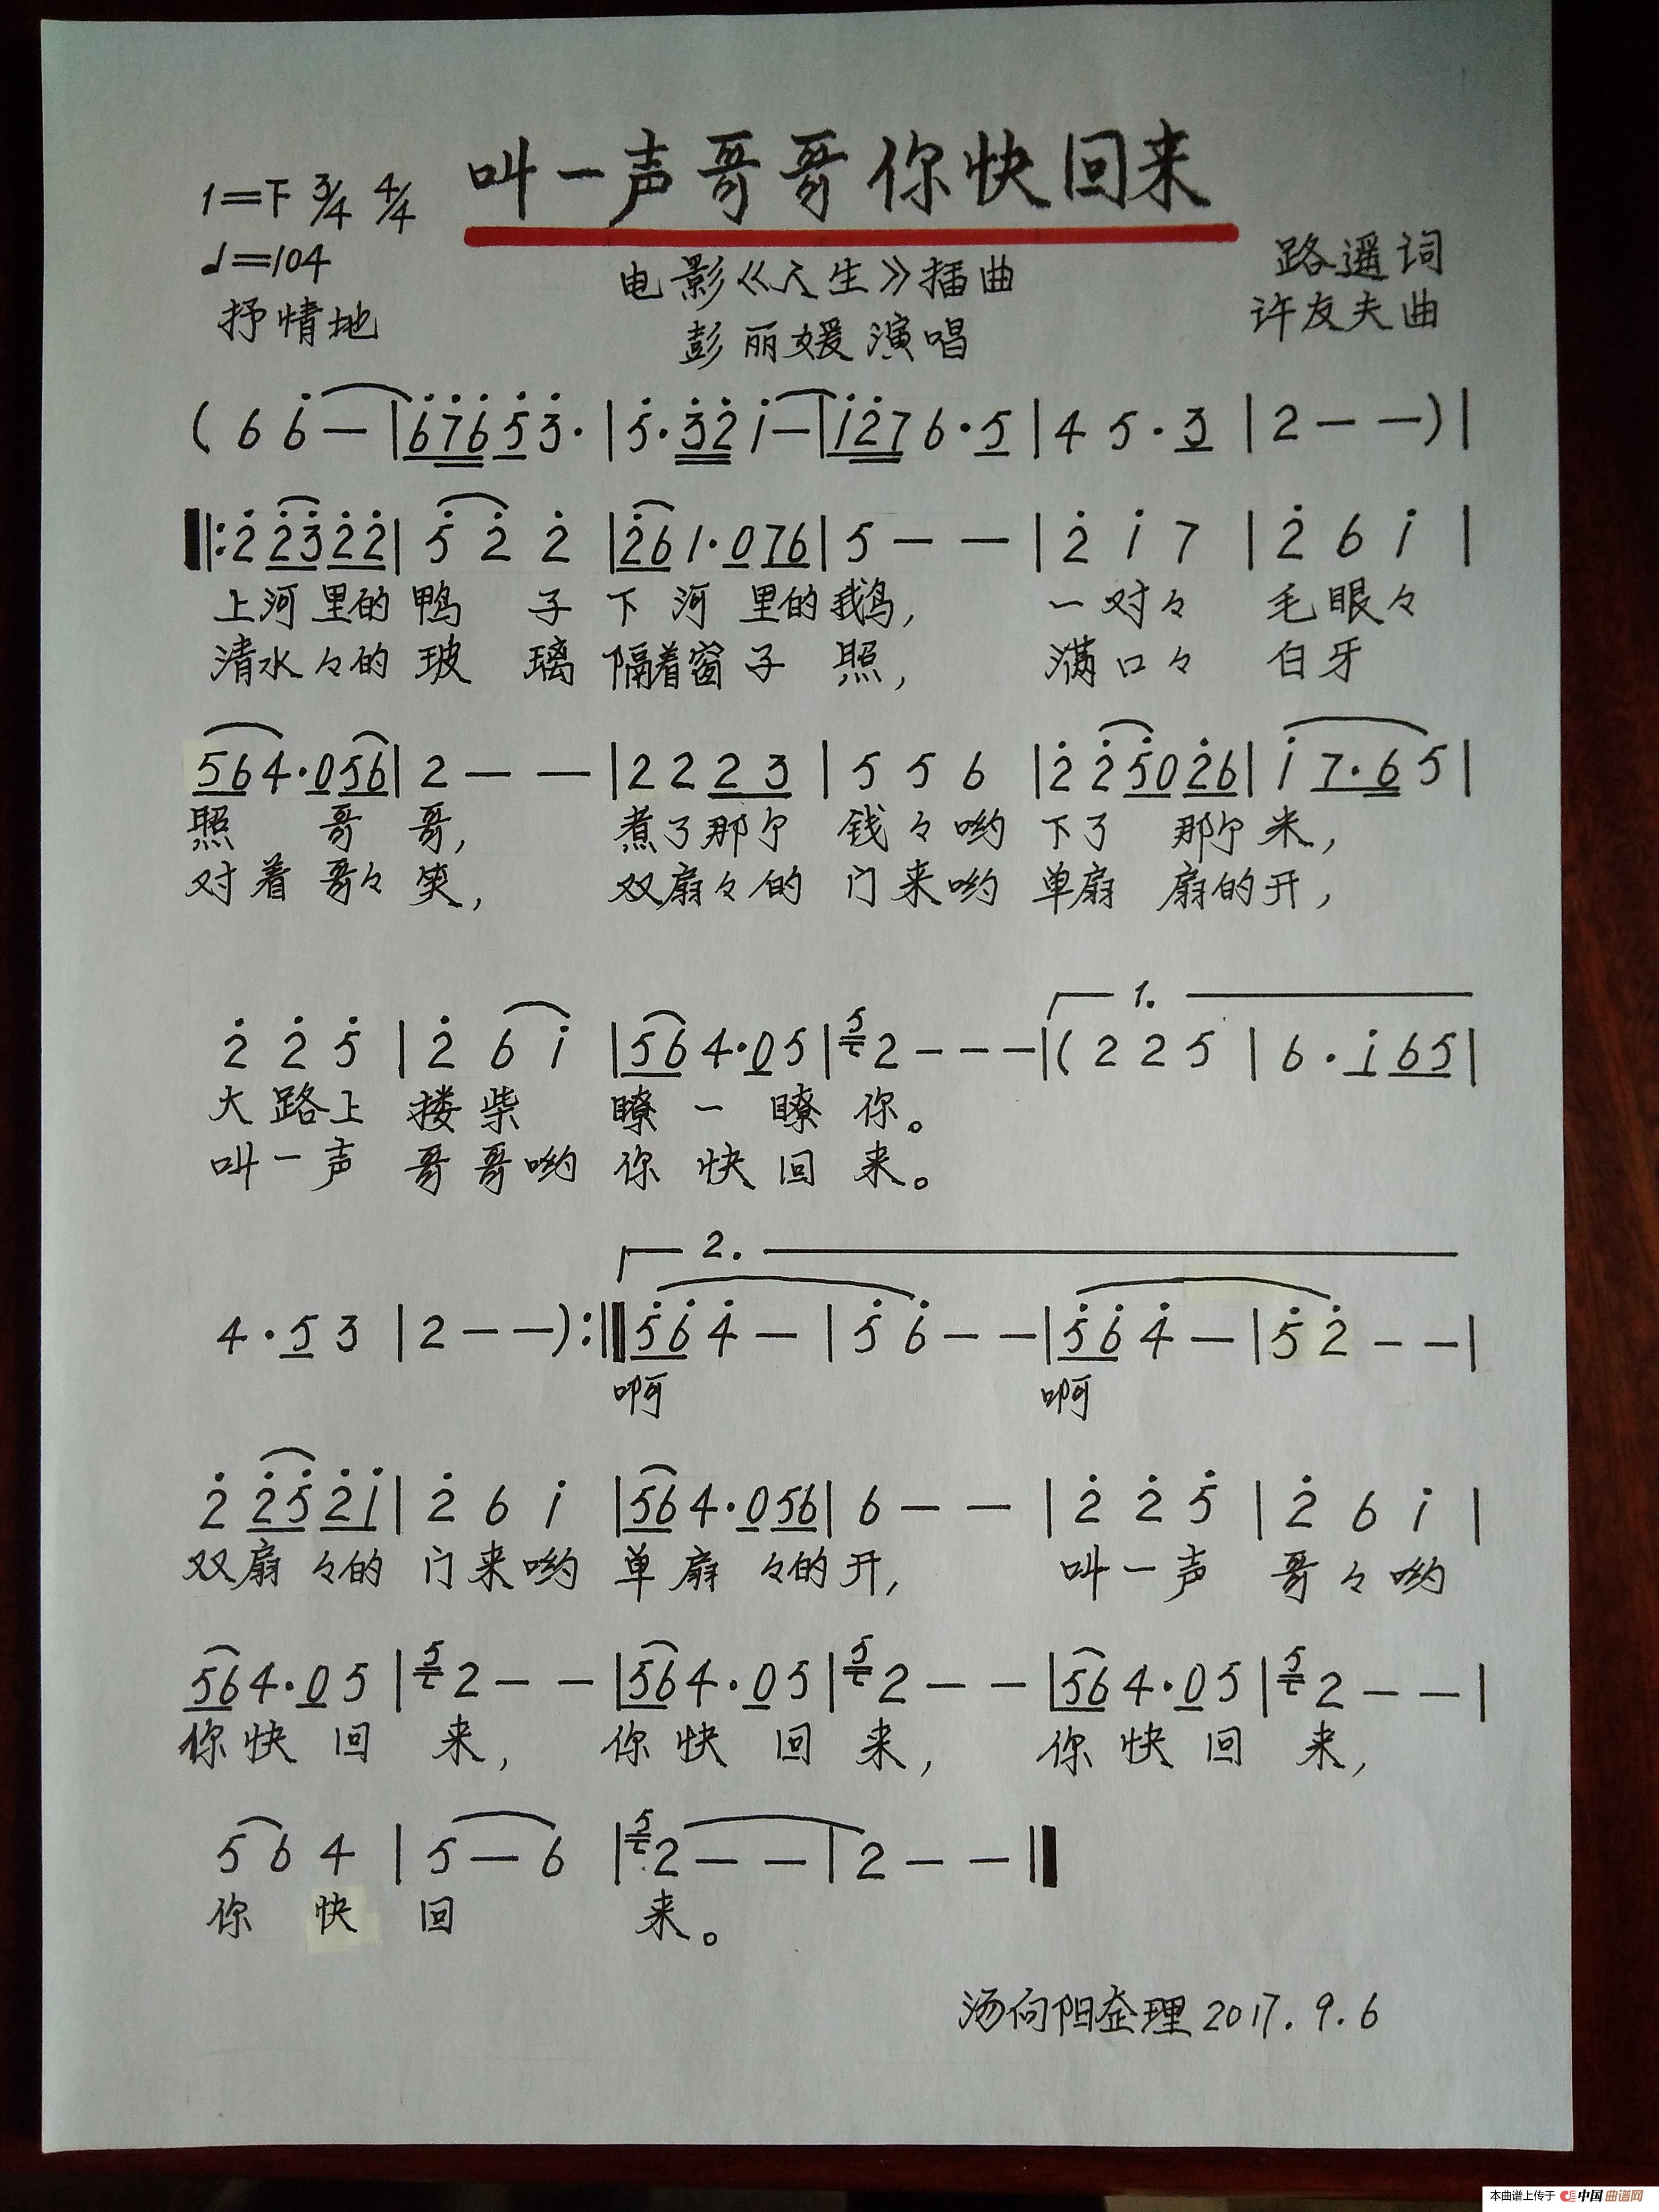 叫一声哥哥你快回来
1=F 3/4 4/4
♩=104
抒情地
电影《人生》插曲
彭丽媛演唱
路遥词
许友夫曲
(6 6̇ — | 6̇7̇6̇ 5̇ 3̇· | 5̇· 3̇2̇ i — | i2̇7 6·5 | 4 5·3 | 2 — —) |
‖: 2̇ 2̇3̇ 2̇2̇ | 5̇ 2̇ 2̇ | 2̇6 1·0 76 | 5 — — | 2̇ i 7 | 2̇ 6 i |
上河里的鸭 子 下 河 里的鹅, 一对々 毛眼々
清水々的玻 璃 隔着窗子 照, 满口々 白牙
56 4·0 56 | 2 — — | 2 2 2 3 | 5 5 6 | 2̇ 2̇ 5̇0 2̇6 | i 7·6 5 |
照 哥 哥, 煮了那个 钱々哟 下了 那个米,
对着哥々笑, 双扇々的 门来哟 单扇 扇的开,
1.
2̇ 2̇ 5̇ | 2̇ 6 i | 56 4·0 5 | 5 2 — — — | (2 2 5 | 6·i 65 |
大路上 搂柴 瞭一瞭你。
叫一声 哥哥哟 你快回来。
2.
4·5 3 | 2 — —) :‖ 5̇6̇ 4̇ — | 5̇ 6̇ — — | 5̇6̇ 4̇ — | 5̇ 2̇ — — |
啊 啊
2̇ 2̇5̇ 2̇i | 2̇ 6 i | 56 4·0 56 | 6 — — | 2̇ 2̇ 5̇ | 2̇ 6 i |
双扇々的 门来哟 单扇 々的开, 叫一声 哥々哟
56 4·0 5 | 5 2 — — | 56 4·0 5 | 5 2 — — | 56 4·0 5 | 5 2 — — |
你快回来, 你快回来, 你快回来,
5 6 4 | 5 — 6 | 5 2 — — | 2 — — ‖
你 快 回 来。
汤向阳整理2017.9.6
本曲谱上传于 中国曲谱网